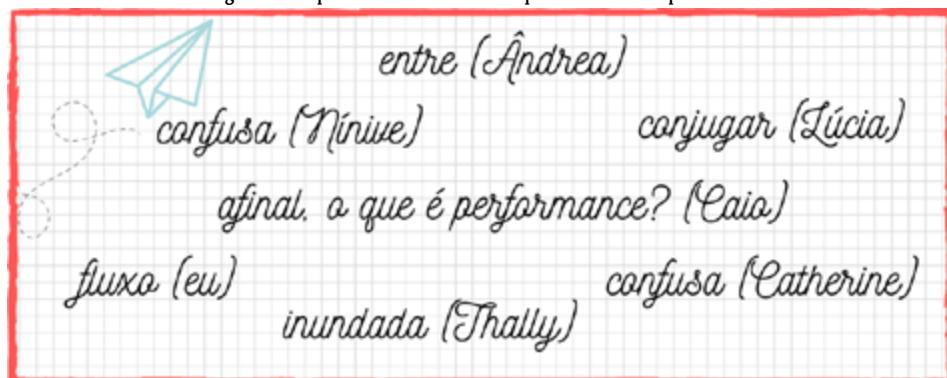 entre (Ândrea)
confusa (Nínive)
conjugar (Lúcia)
afinal, o que é performance? (Caio)
fluxo (eu)
confusa (Catherine)
inundada (Thally)